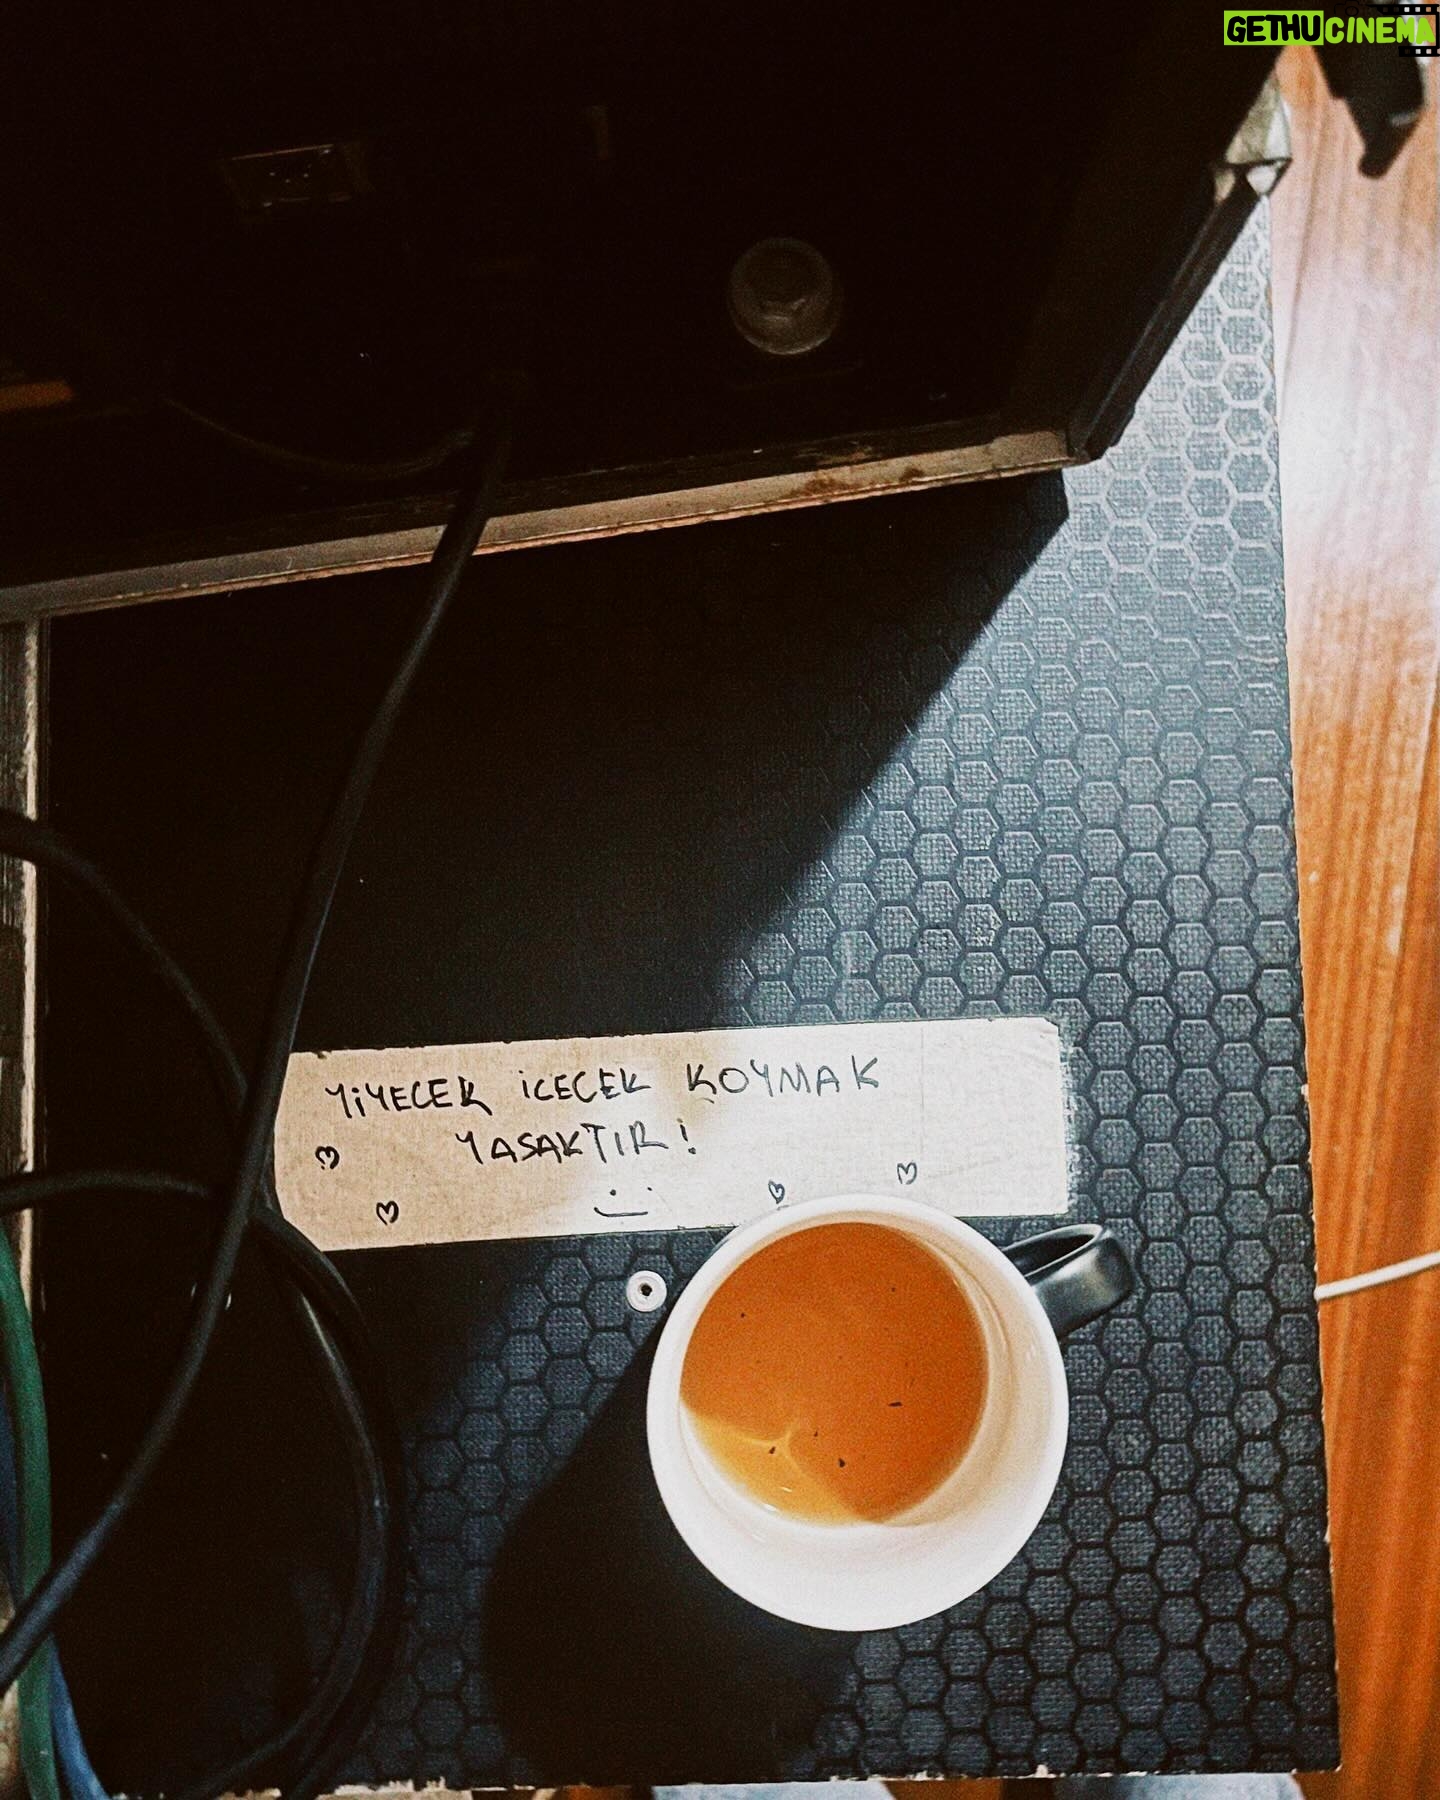 GETHUCINEMA
YİYECEK İCECEK KOYMAK
YASAKTIR!